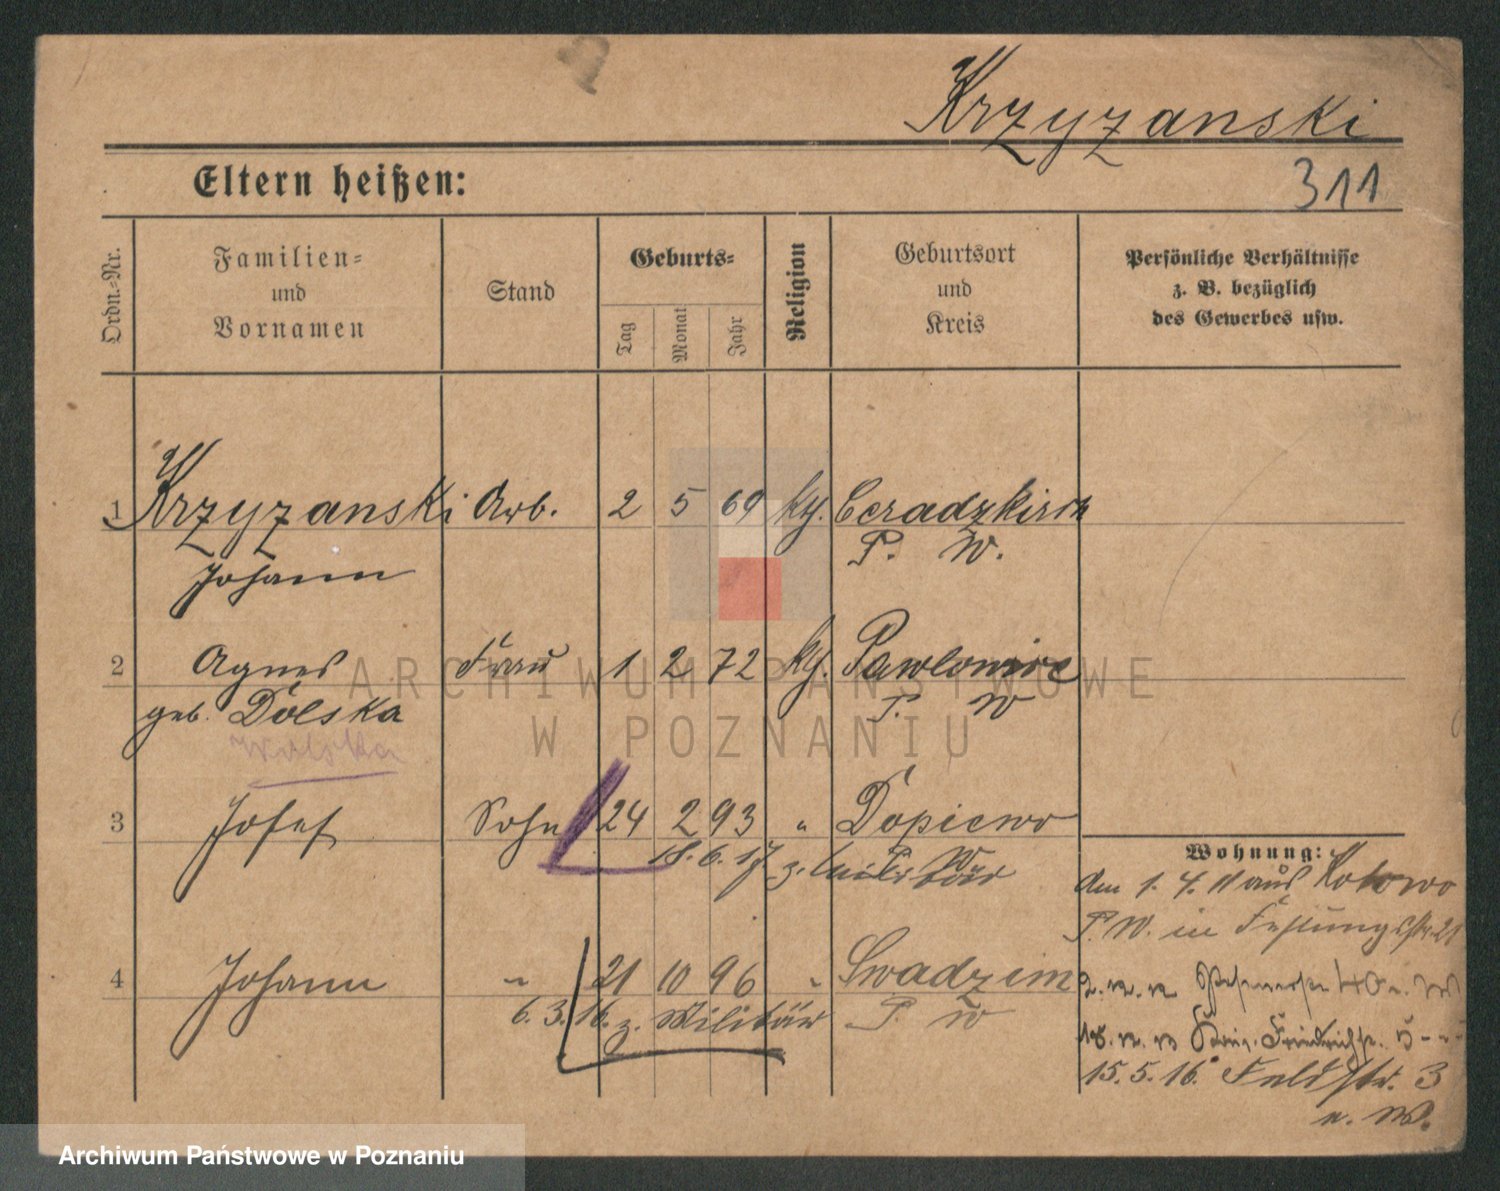 Krzyzanski
311
Eltern heißen:
Ordn.-Nr.
Familien-
und
Vornamen
Stand
Geburts-
Tag
Monat
Jahr
Religion
Geburtsort
und
Kreis
Persönliche Verhältnisse
z. B. bezüglich
des Gewerbes usw.
1 Krzyzanski Arb. 2 5 69 kth. Ceradzkirch
Johann P. W.
2 Agnes Frau 1 2 72 kth.
geb. Dolska P. W
Wolska
3 Josef Sohn 24 2 93 " Dopiewo
18. 6. 17 z. Militär P. W
4 Johann " 21 10 96 " Swadzim
6. 3. 16. z. Militär P. W
Wohnung:
Am 1. 4. 11 aus Kotowo
P. W. in Festungsstr. 21
15. 5. 16. Feldstr. 3
n. W.
ARCHIWUM PAŃSTWOWE
W POZNANIU
Archiwum Państwowe w Poznaniu